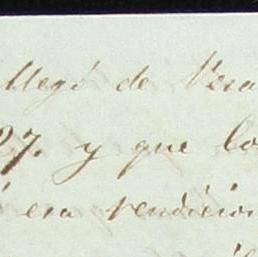 llegó de Vera
27. y que lo
esa rendicion